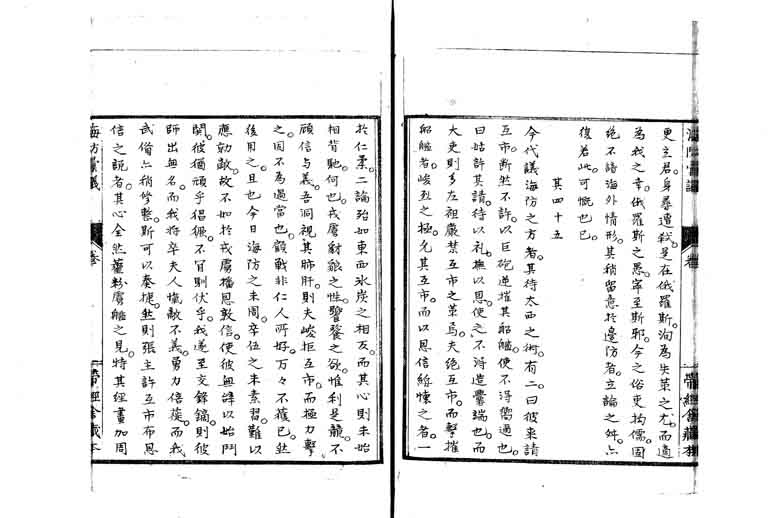 更立君身尋遭弒是在俄羅斯洵為失策之尤而適
為我之幸俄羅斯之愚寧至斯邪今之俗吏拘儒固
絶不諳海外情形其稍留意於邊防者立論之舛亦
復若此可慨也已
其四十五
今代議海防之方者其待太西之術有二曰彼来請
互市斷然不許以巨砲逆摧其船艦使不得嚮邇也
曰姑許其請待以礼撫以恩使之不得造釁端也而
大吏則多左袒嚴禁互市之策焉夫絶互市而擊摧
船艦者峻烈之極允其互市而以恩信綏懷之者一
於仁柔二論殆如東西氷炭之相反而其心則未始
相背馳何也戎虜豺狼之性饕餮之欲惟利是競不
顧信与義吾洞視其肺肝則夫峻拒互市而極力擊
之固不為過當也顧戰非仁人所好万々不獲已然
後用之且也今日海防之未周卒伍之未素習難以
應勍敵故不如於戎虜播恩敦信使彼無辞以始鬥
鬨彼獨頑乎倡獗不冐則伏乎我遂至交鋒鏑則彼
師出無名而我将卒夫人愾敵不義勇力倍蓰而我
武備亦稍修整斯可以奏捷然則張主許互市布恩
信之説者其心全然虀粉虜艦之見特其經畫加周
海防彙議
卷
帶經舍藏本
海防彙議
卷
帶經舍藏本